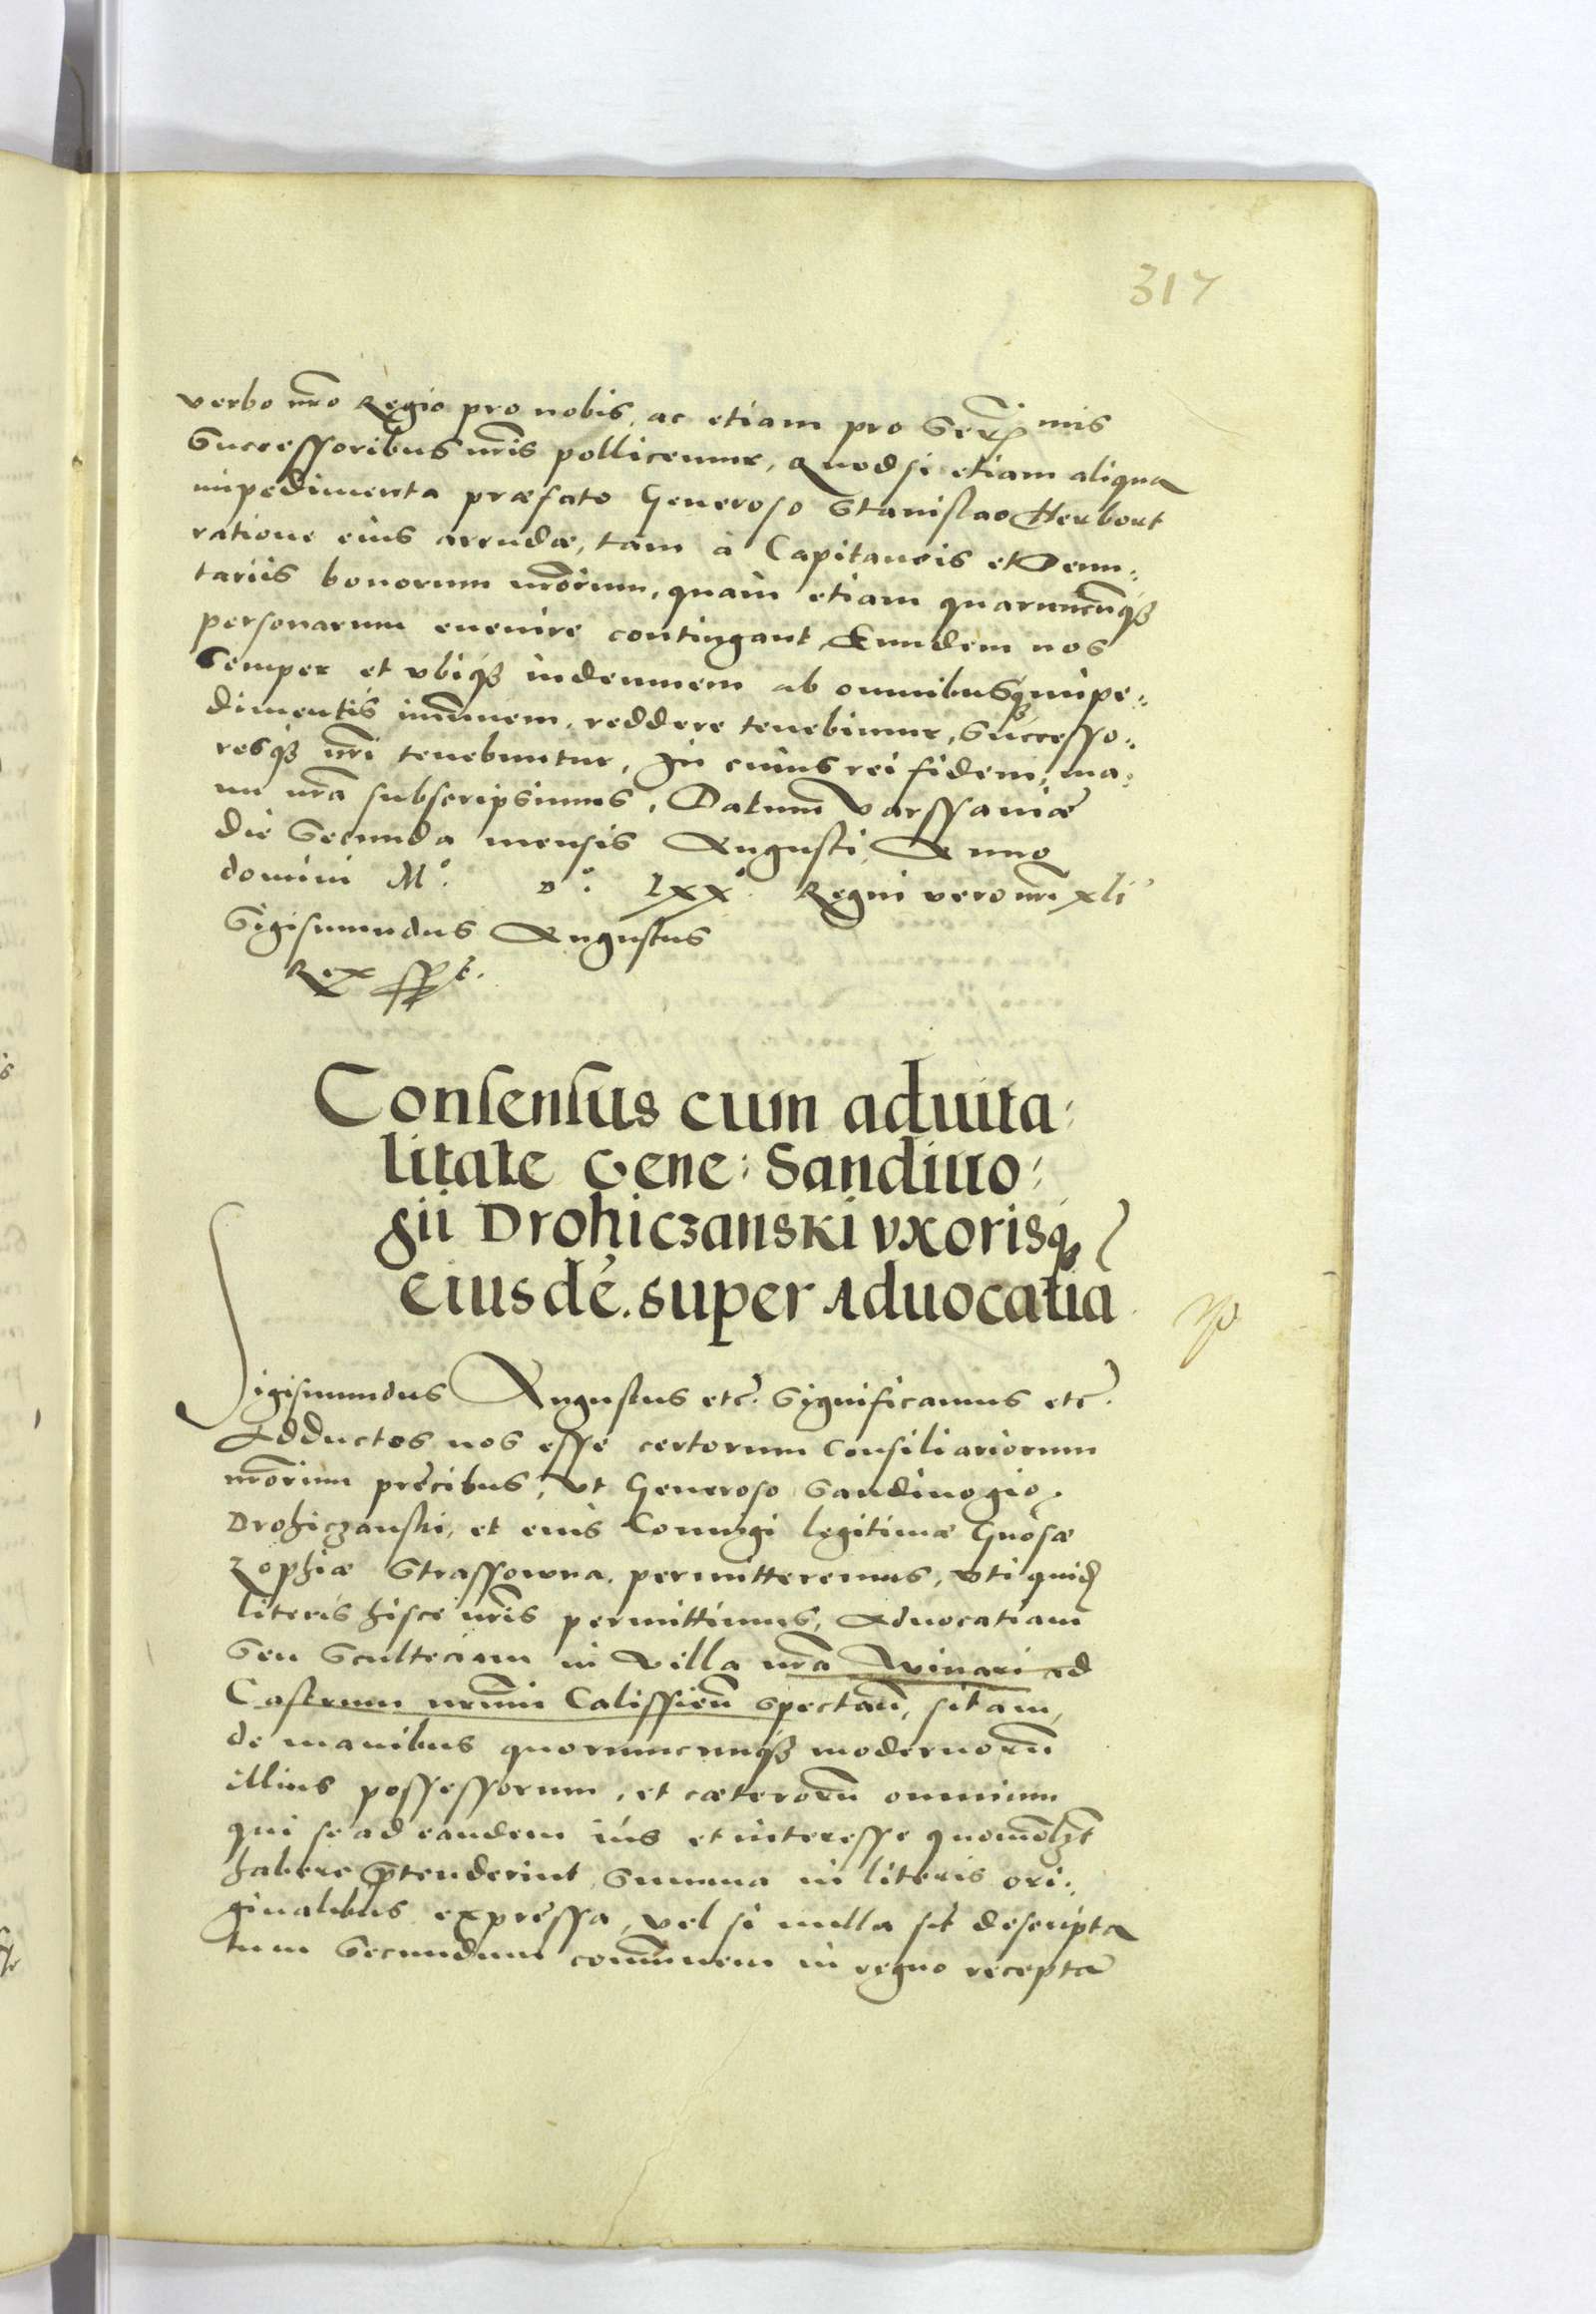 317
verbo nr̃o Regio pro nobis, ac etiam pro Serẽmis
Successoribus nr̃is pollicemur, Quod si etiam aliqua
impedimenta præfato Generoso Stanislao Herbort
ratione eius arrendæ, tam à Capitaneis et Denu:
tariis bonorum nr̃orum, quàm etiam quarumcũq;
personarum euenire contingant Eundem nos
Semper et vbiq; indemnem ab omnibusq; impe:
dimentis im̃unem reddere tenebimur, Successo:
resq; nr̃i tenebuntur, In cuius rei fidem, ma:
nu nr̃a subscripsimus, Datum Varssauiæ
die Secunda mensis Augusti, Anno
domini M° D° Lxx° Regni vero nr̃i xli°
Sigismundus Augustus
Rex sspt.
Consensus cum aduita:
litate Gene: Sandiuo:
gii Drohiczanski vxorisq;
eiusdẽ. super Aduocatia
Sigismundus Augustus etc̃. Significamus etc̃.
Adductos nos esse certorum Consiliariorum
nr̃orum precibus, vt Generoso Sandiuogio
Drohiczanski, et eius Coniugi legitimæ Gñosæ
Zophiæ Strassowna, permitteremus, vti quid
literis hisce nr̃is permittimus, Aduocatiam
Seu Scultetiam in Villa nr̃a Winari ad
Castrum nrũm Calissieñ spectañ, sitam,
de manibus quorumcumq; modernorũ
illius possessorum, et cæterorũ omnium
qui se ad eandem ius et interesse quomõlzt
habere p̃tenderint Summa in literis ori:
ginalibus expressa, vel si nulla sit descripta
tum Secundum com̃unem in regno receptã